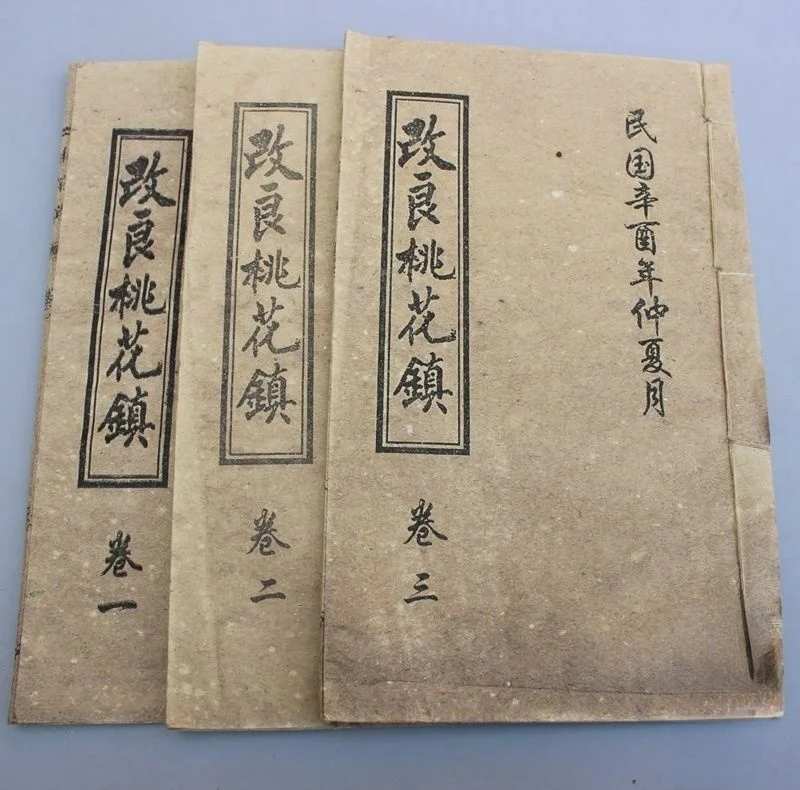 民国辛酉年仲夏月
改良桃花鎮
卷三
改良桃花鎮
卷二
改良桃花鎮
卷一